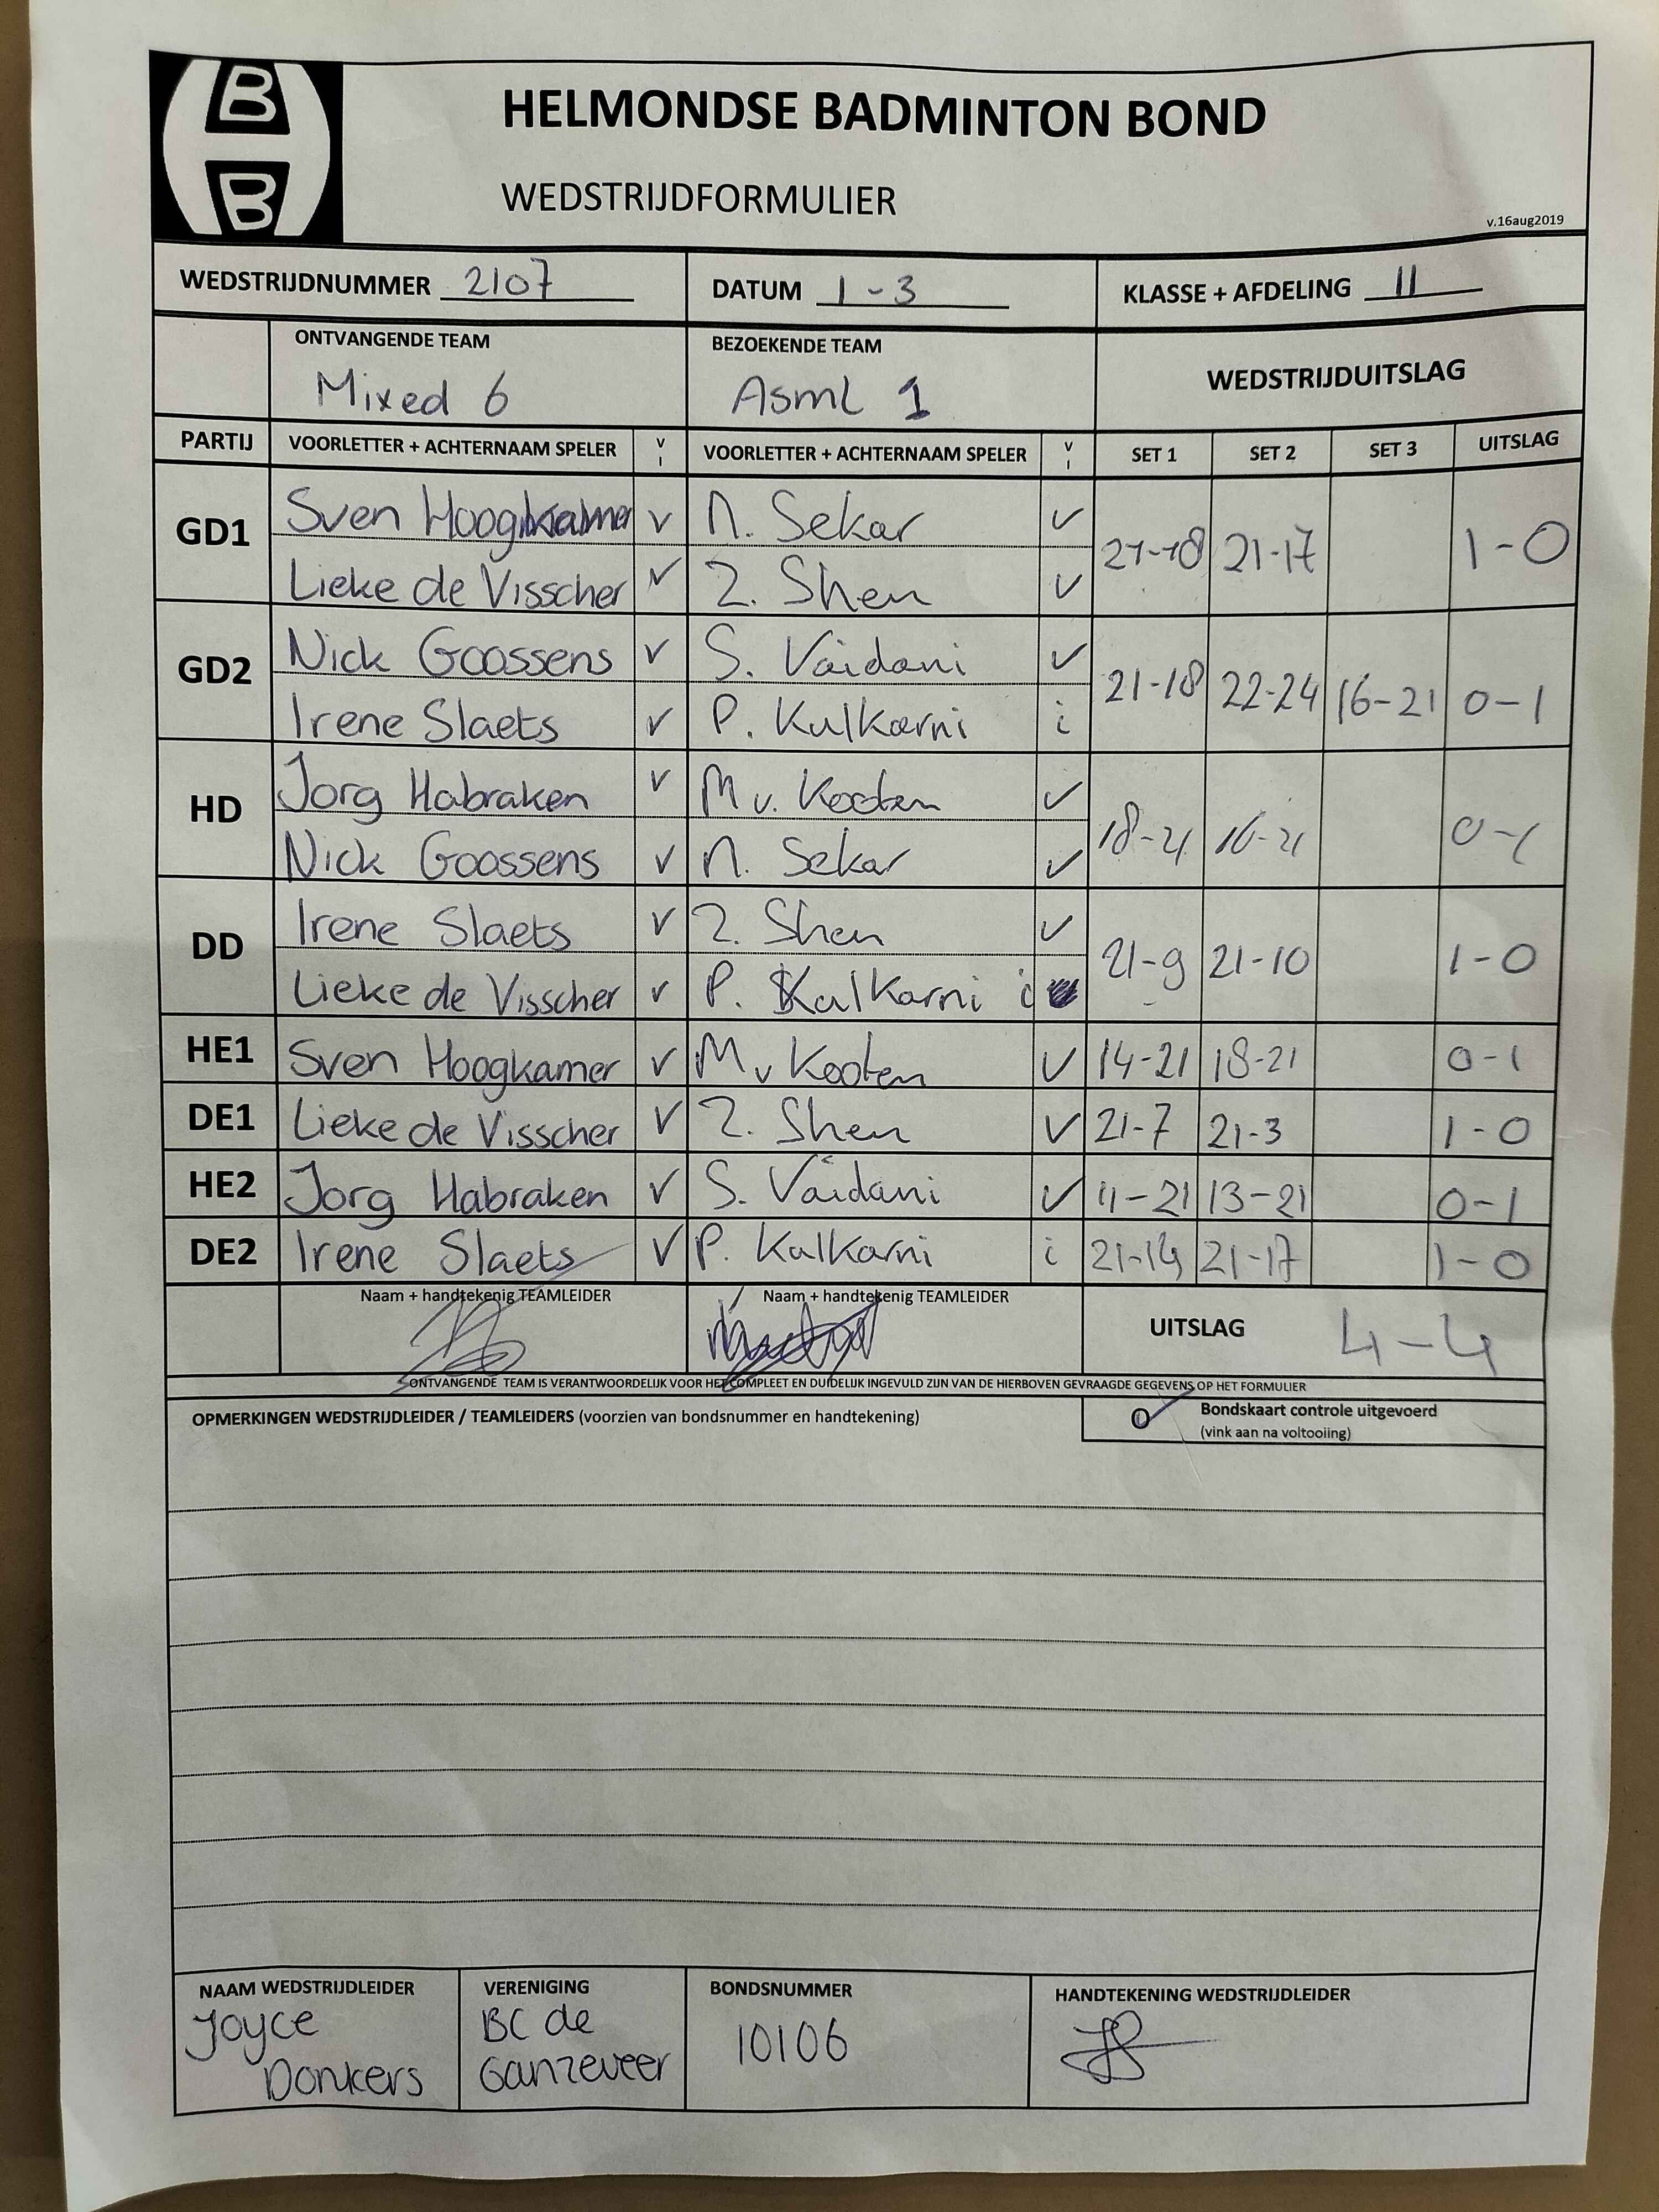 B
B
HELMONDSE BADMINTON BOND
WEDSTRIJDFORMULIER
v.16aug2019
WEDSTRIJDNUMMER 2107 DATUM 1-3 KLASSE + AFDELING 11
ONTVANGENDE TEAM BEZOEKENDE TEAM WEDSTRIJDUITSLAG
Mixed 6 Asml 1
PARTIJ VOORLETTER + ACHTERNAAM SPELER V I VOORLETTER + ACHTERNAAM SPELER V I SET 1 SET 2 SET 3 UITSLAG
GD1 Sven Hoogkamer v N. Sekar v 21-18 21-17 1-0
Lieke de Visscher v Z. Shen v
GD2 Nick Goossens v S. Vaidani v 21-18 22-24 16-21 0-1
Irene Slaets v P. Kulkarni i
HD Jorg Habraken v M v. Kooten v 18-21 16-21 0-1
Nick Goossens v N. Sekar v
DD Irene Slaets v Z. Shen v 21-9 21-10 1-0
Lieke de Visscher v P. Kalkarni i
HE1 Sven Hoogkamer v M v Kooten v 14-21 18-21 0-1
DE1 Lieke de Visscher v Z. Shen v 21-7 21-3 1-0
HE2 Jorg Habraken v S. Vaidani v 11-21 13-21 0-1
DE2 Irene Slaets v P. Kalkarni i 21-14 21-17 1-0
Naam + handtekenig TEAMLEIDER Naam + handtekenig TEAMLEIDER UITSLAG 4-4
ONTVANGENDE TEAM IS VERANTWOORDELIJK VOOR HET COMPLEET EN DUIDELIJK INGEVULD ZIJN VAN DE HIERBOVEN GEVRAAGDE GEGEVENS OP HET FORMULIER
OPMERKINGEN WEDSTRIJDLEIDER / TEAMLEIDERS (voorzien van bondsnummer en handtekening) O Bondskaart controle uitgevoerd
(vink aan na voltooiing)
NAAM WEDSTRIJDLEIDER VERENIGING BONDSNUMMER HANDTEKENING WEDSTRIJDLEIDER
Joyce BC de 10106
Donkers Ganzeveer